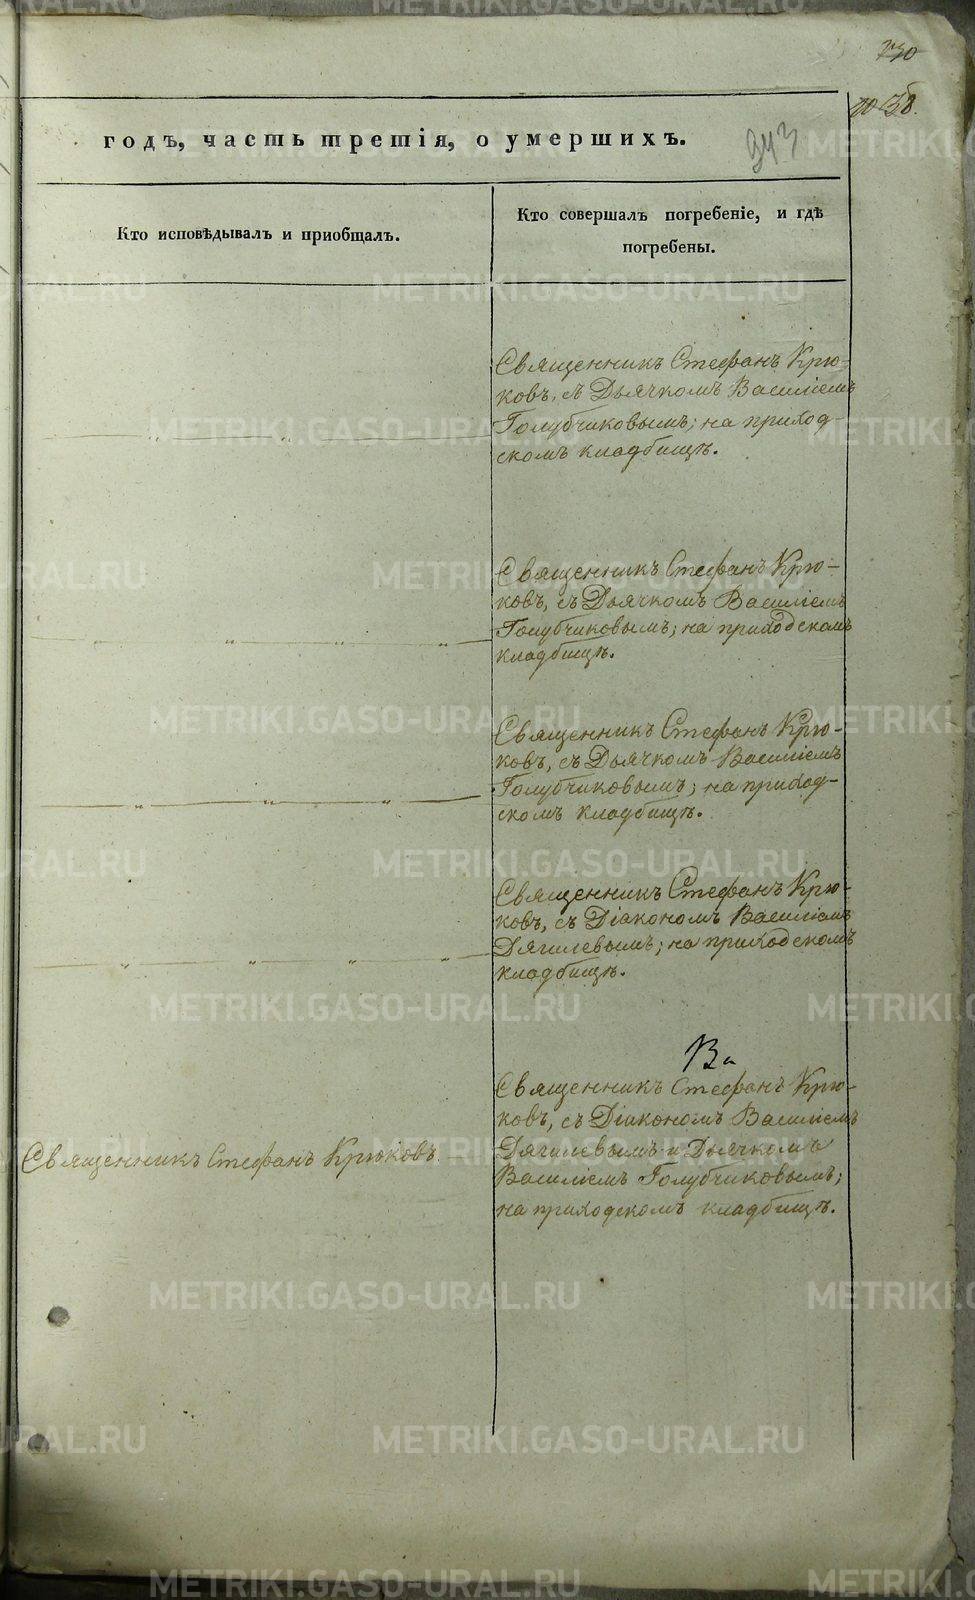 730
годъ, часть третія, о умершихъ.
343
Кто исповѣдывалъ и приобщалъ.
Кто совершалъ погребеніе, и гдѣ
погребены.
Священникъ Стефанъ Крю-
ковъ, съ Дьячкомъ Василіемъ
Голубчиковымъ; на приход-
скомъ кладбищѣ.
Священникъ Стефанъ Крю-
ковъ, съ Дьячкомъ Василіемъ
Голубчиковымъ; на приходскомъ
кладбищѣ.
Священникъ Стефанъ Крю-
ковъ, съ Дьячкомъ Василіемъ
Голубчиковымъ; на приход-
скомъ кладбищѣ.
Священникъ Стефанъ Крю-
ковъ, съ Діакономъ Василіемъ
Дягилевымъ; на приходскомъ
кладбищѣ.
Священникъ Стефанъ Крюковъ.
Священникъ Стефанъ Крю-
ковъ, съ Діакономъ Василіемъ
Дягилевымъ и Дьячкомъ
Василіемъ Голубчиковымъ;
на приходскомъ кладбищѣ.
METRIKI.GASO-URAL.RU